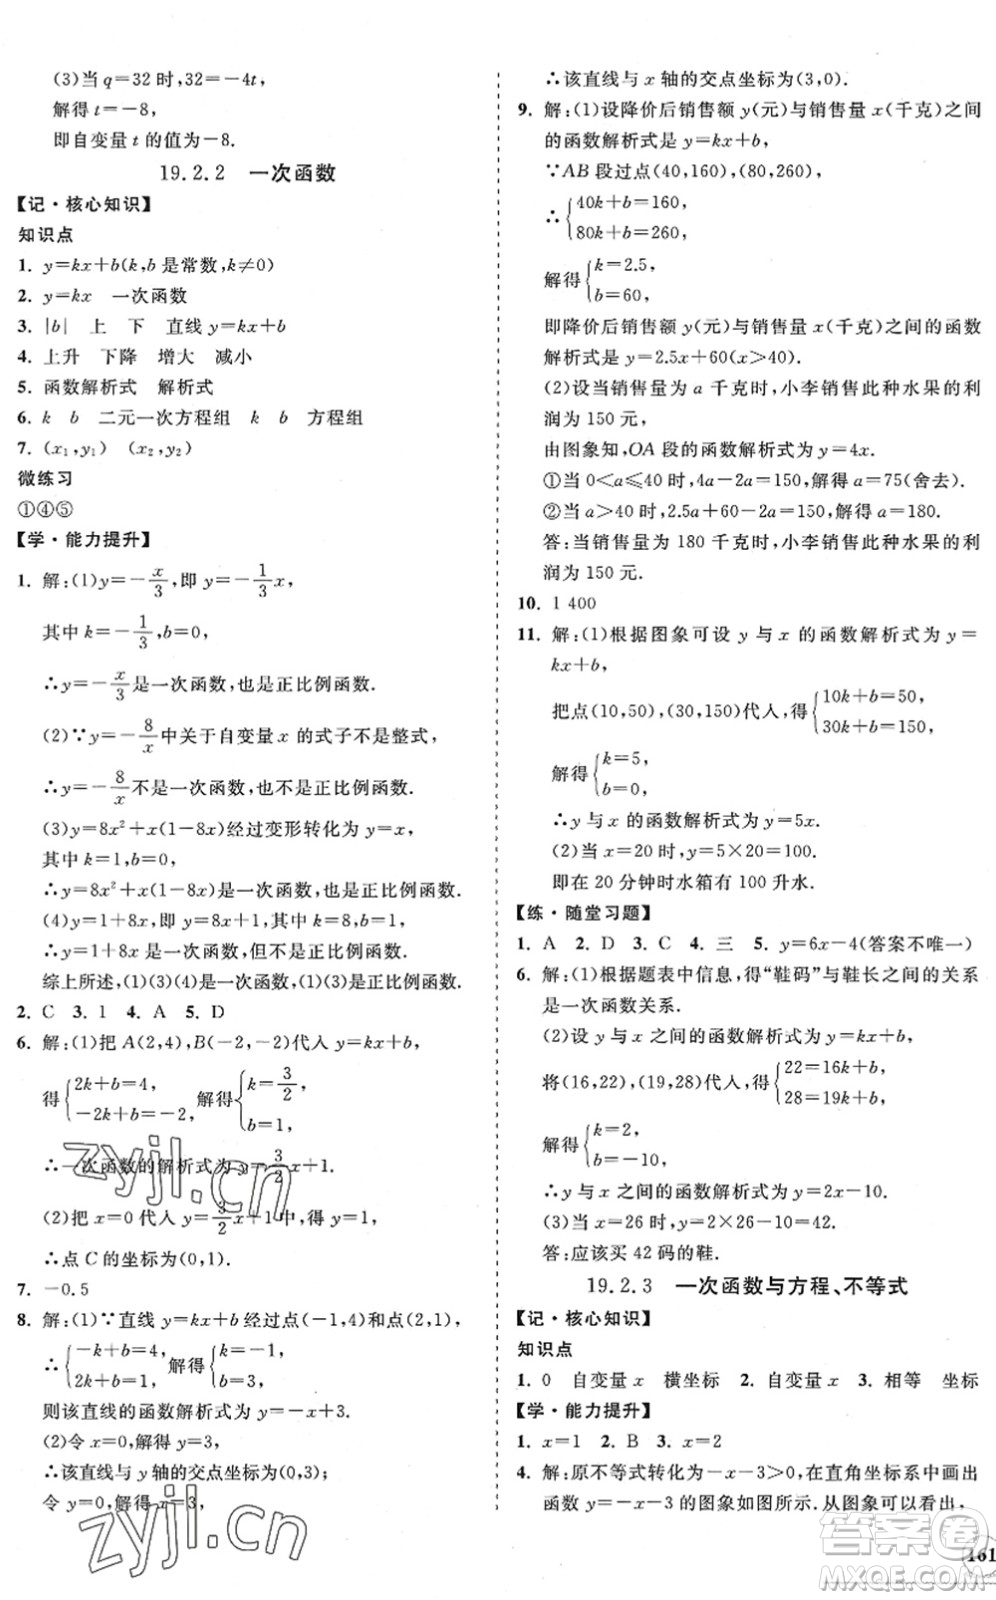 (3)当 q=32 时,32=-4t,
解得 t=-8,
即自变量 t 的值为-8.
19.2.2 一次函数
【记·核心知识】
知识点
1. y=kx+b(k,b 是常数,k≠0)
2. y=kx 一次函数
3. |b| 上 下 直线 y=kx+b
4. 上升 下降 增大 减小
5. 函数解析式 解析式
6. k b 二元一次方程组 k b 方程组
7. (x₁,y₁) (x₂,y₂)
微练习
①④⑤
【学·能力提升】
1. 解:(1)y=-x/3,即 y=-1/3x,
其中 k=-1/3,b=0,
∴y=-x/3是一次函数,也是正比例函数.
(2)∵y=-8/x中关于自变量 x 的式子不是整式,
∴y=-8/x不是一次函数,也不是正比例函数.
(3)y=8x²+x(1-8x)经过变形转化为 y=x,
其中 k=1,b=0,
∴y=8x²+x(1-8x)是一次函数,也是正比例函数.
(4)y=1+8x,即 y=8x+1,其中 k=8,b=1,
∴y=1+8x 是一次函数,但不是正比例函数.
综上所述,(1)(3)(4)是一次函数,(1)(3)是正比例函数.
2. C 3. 1 4. A 5. D
6. 解:(1)把 A(2,4),B(-2,-2)代入 y=kx+b,
得{2k+b=4, -2k+b=-2, 解得{k=3/2, b=1,
∴一次函数的解析式为 y=3/2x+1.
(2)把 x=0 代入 y=3/2x+1中,得 y=1,
∴点 C 的坐标为(0,1).
7. -0.5
8. 解:(1)∵直线 y=kx+b 经过点(-1,4)和点(2,1),
∴{-k+b=4, 2k+b=1, 解得{k=-1, b=3,
则该直线的函数解析式为 y=-x+3.
(2)令 x=0,解得 y=3,
∴该直线与 y 轴的交点坐标为(0,3);
令 y=0,解得 x=3,
∴该直线与 x 轴的交点坐标为(3,0).
9. 解:(1)设降价后销售额 y(元)与销售量 x(千克)之间
的函数解析式是 y=kx+b,
∵AB 段过点(40,160),(80,260),
∴{40k+b=160, 80k+b=260,
解得{k=2.5, b=60,
即降价后销售额 y(元)与销售量 x(千克)之间的函数
解析式是 y=2.5x+60(x>40).
(2)设当销售量为 a 千克时,小李销售此种水果的利
润为 150 元.
由图象知,OA 段的函数解析式为 y=4x.
①当 0<a≤40 时,4a-2a=150,解得 a=75(舍去).
②当 a>40 时,2.5a+60-2a=150,解得 a=180.
答:当销售量为 180 千克时,小李销售此种水果的利
润为 150 元.
10. 1 400
11. 解:(1)根据图象可设 y 与 x 的函数解析式为 y=
kx+b,
把点(10,50),(30,150)代入,得{10k+b=50, 30k+b=150,
解得{k=5, b=0,
∴y 与 x 的函数解析式为 y=5x.
(2)当 x=20 时,y=5×20=100.
即在 20 分钟时水箱有 100 升水.
【练·随堂习题】
1. A 2. D 3. C 4. 三 5. y=6x-4(答案不唯一)
6. 解:(1)根据题表中信息,得“鞋码”与鞋长之间的关系
是一次函数关系.
(2)设 y 与 x 之间的函数解析式为 y=kx+b,
将(16,22),(19,28)代入,得{22=16k+b, 28=19k+b,
解得{k=2, b=-10,
∴y 与 x 之间的函数解析式为 y=2x-10.
(3)当 x=26 时,y=2×26-10=42.
答:应该买 42 码的鞋.
19.2.3 一次函数与方程、不等式
【记·核心知识】
知识点
1. 0 自变量 x 横坐标 2. 自变量 x 3. 相等 坐标
【学·能力提升】
1. x=1 2. B 3. x=2
4. 解:原不等式转化为-x-3>0,在直角坐标系中画出
函数 y=-x-3 的图象如图所示.从图象可以看出,
161
zyjl.cn
zyjl.cn
答案卷
MXQE.COM